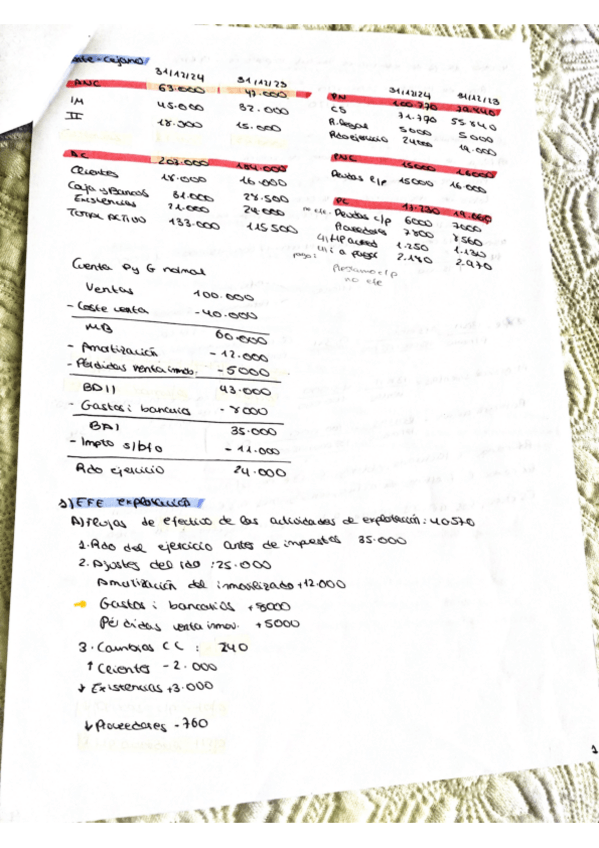 31/12/24 31/12/23
ANC 63.000 47.000
IM 45.000 32.000
II 18.000 15.000
AC 207.000
Clientes 18.000 16.000
Caja y Bancos 31.000 28.500
Existencias 21.000 24.000
TOTAL ACTIVO 133.000 115.500
31/12/24 31/12/23
PN 100.770
CS 71.770 55.840
R. legal 5000 5000
Rdo ejercicio 24000 19.000
PNC 15000 16000
Deudas l/p 15000 16.000
PC
Deudas c/p 6000 7000
Proveedores 7800 8560
HP acreed 1.250 1.130
i a pagar 2.180 2.970
pago i
Préstamo c/p
no efe
Cuenta PyG normal
Ventas 100.000
- Coste venta -40.000
MB 60.000
- Amortización - 12.000
- Pérdidas venta inmov. - 5000
BAII 43.000
- Gastos i bancarios - 8000
BAI 35.000
- Impto s/bfo - 11.000
Rdo ejercicio 24.000
EFE explotación
A) Flujos de efectivo de las actividades de explotación: 40570
1. Rdo del ejercicio antes de impuestos 35.000
2. Ajustes del rdo: 25.000
Amortización del inmovilizado +12.000
→ Gastos i bancarios +8000
Pérdidas venta inmov. +5000
3. Cambios CC : 240
↑ Clientes - 2.000
↓ Existencias +3.000
↓ Proveedores - 760
1